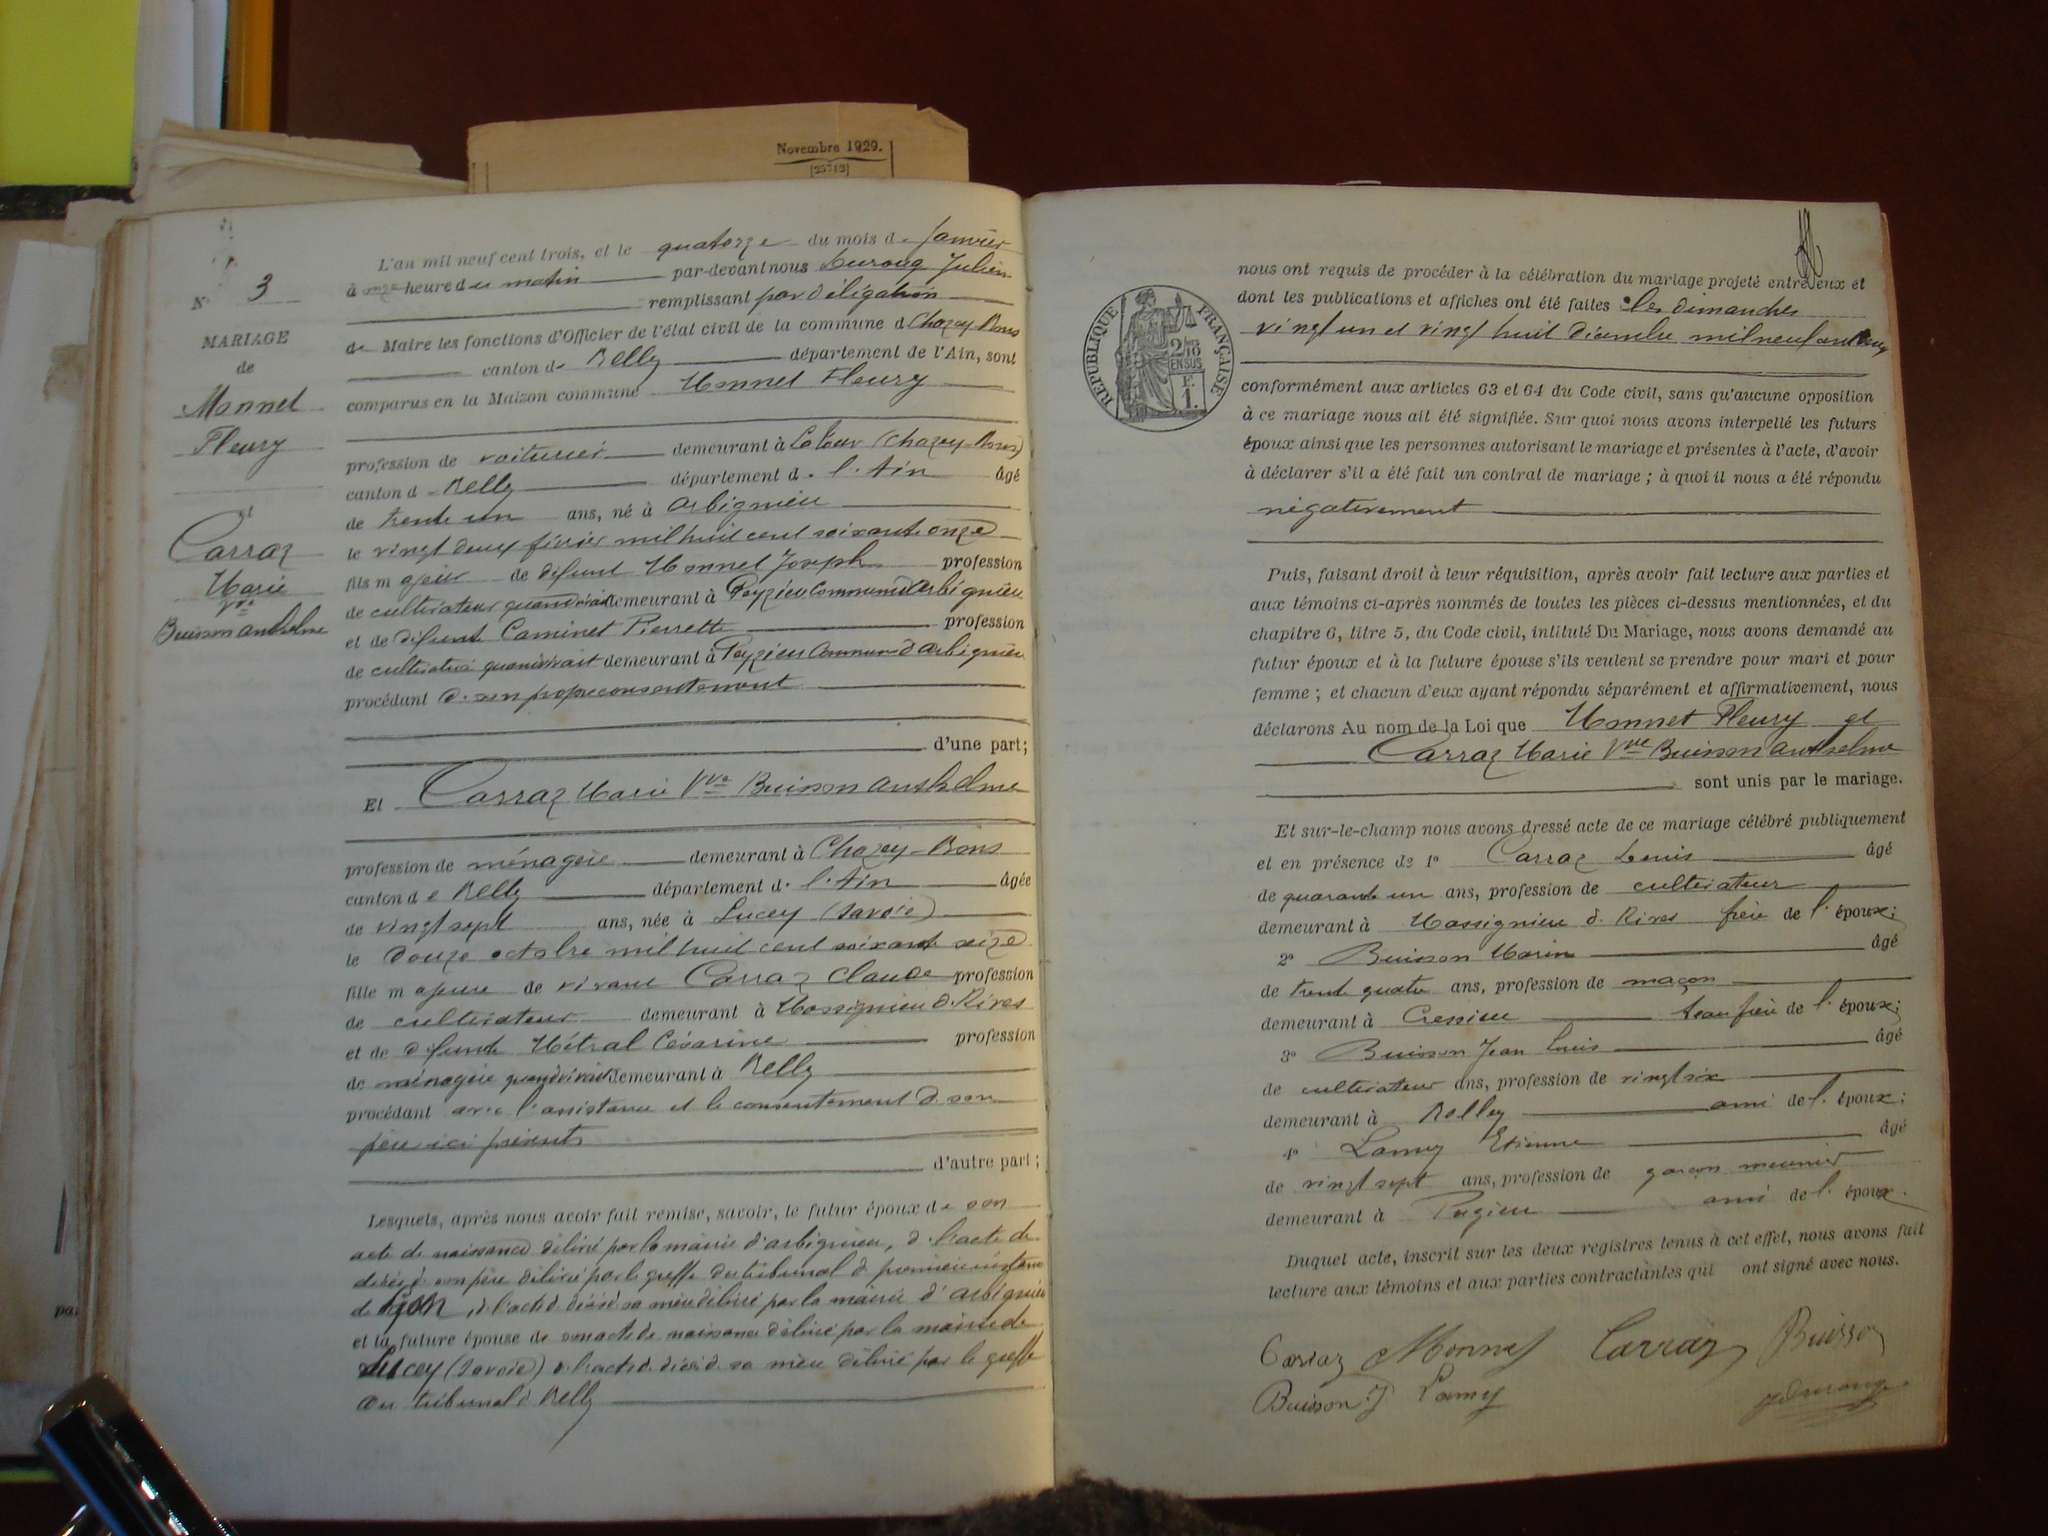 Novembre 1929.
[25712]
N° 3
MARIAGE
de
Monnet
Fleury
et
Carraz
Marie
Vve
Buisson Anthelme
L'an mil neuf cent trois, et le quatorze du mois de Janvier
à onze heure du matin par-devant nous Julien
remplissant par délégation
de Maire les fonctions d'Officier de l'état civil de la commune d Chazey-Bons
canton de Belley département de l'Ain, sont
comparus en la Maison commune Monnet Fleury
profession de voiturier demeurant à (Chazey-Bons)
canton de Belley département de l'Ain âgé
de trente un ans, né à Arbignieu
le vingt deux février mil huit cent soixante onze
fils majeur de défunt Monnet Joseph profession
de cultivateur quand vivait demeurant à Peyzieu Commune d'Arbignieu
et de défunte Caminet Pierrette profession
de cultivatrice quand vivait demeurant à Peyzieu Commune d'Arbignieu
procédant de son propre consentement
d'une part;
Et Carraz Marie Vve Buisson Anthelme
profession de ménagère demeurant à Chazey-Bons
canton de Belley département de l'Ain âgée
de vingt sept ans, née à Lucey (Savoie)
le douze octobre mil huit cent soixante seize
fille majeure de vivant Carraz Claude profession
de cultivateur demeurant à Massignieu d. Rives
et de défunte Métral Césarine profession
de ménagère quand vivait demeurant à Belley
procédant avec l'assistance et le consentement de son
père ici présent
d'autre part;
Lesquels, après nous avoir fait remise, savoir, le futur époux de son
acte de naissance délivré par la mairie d'Arbignieu, de l'acte de
décès de son père délivré par le greffe du tribunal de première instance
de Lyon, de l'acte de décès de sa mère délivré par la mairie d'Arbignieu
et la future épouse de son acte de naissance délivré par la mairie de
Lucey (Savoie) de l'acte de décès de sa mère délivré par le greffe
du tribunal de Belley
RÉPUBLIQUE FRANÇAISE
2/10
EN SUS
nous ont requis de procéder à la célébration du mariage projeté entre eux et
dont les publications et affiches ont été faites les dimanches
vingt un et vingt huit décembre mil neuf cent
conformément aux articles 63 et 64 du Code civil, sans qu'aucune opposition
à ce mariage nous ait été signifiée. Sur quoi nous avons interpellé les futurs
époux ainsi que les personnes autorisant le mariage et présentes à l'acte, d'avoir
à déclarer s'il a été fait un contrat de mariage; à quoi il nous a été répondu
négativement
Puis, faisant droit à leur réquisition, après avoir fait lecture aux parties et
aux témoins ci-après nommés de toutes les pièces ci-dessus mentionnées, et du
chapitre 6, titre 5, du Code civil, intitulé Du Mariage, nous avons demandé au
futur époux et à la future épouse s'ils veulent se prendre pour mari et pour
femme; et chacun d'eux ayant répondu séparément et affirmativement, nous
déclarons Au nom de la Loi que Monnet Fleury et
Carraz Marie Vve Buisson Anthelme
sont unis par le mariage.
Et sur-le-champ nous avons dressé acte de ce mariage célébré publiquement
et en présence de 1° Carraz Louis âgé
de quarante un ans, profession de cultivateur
demeurant à Massignieu d. Rives frère de l'époux;
2° Buisson Marin âgé
de trente quatre ans, profession de maçon
demeurant à Cressieu beau frère de l'époux;
3° Buisson Jean Louis âgé
de cultivateur ans, profession de vingt six
demeurant à Belley ami de l'époux;
4° Lamy Etienne âgé
de vingt sept ans, profession de garçon meunier
demeurant à Pugieu ami de l'époux.
Duquel acte, inscrit sur les deux registres tenus à cet effet, nous avons fait
lecture aux témoins et aux parties contractantes qui ont signé avec nous.
Carraz Monnet Carraz Buisson
Buisson J Lamy